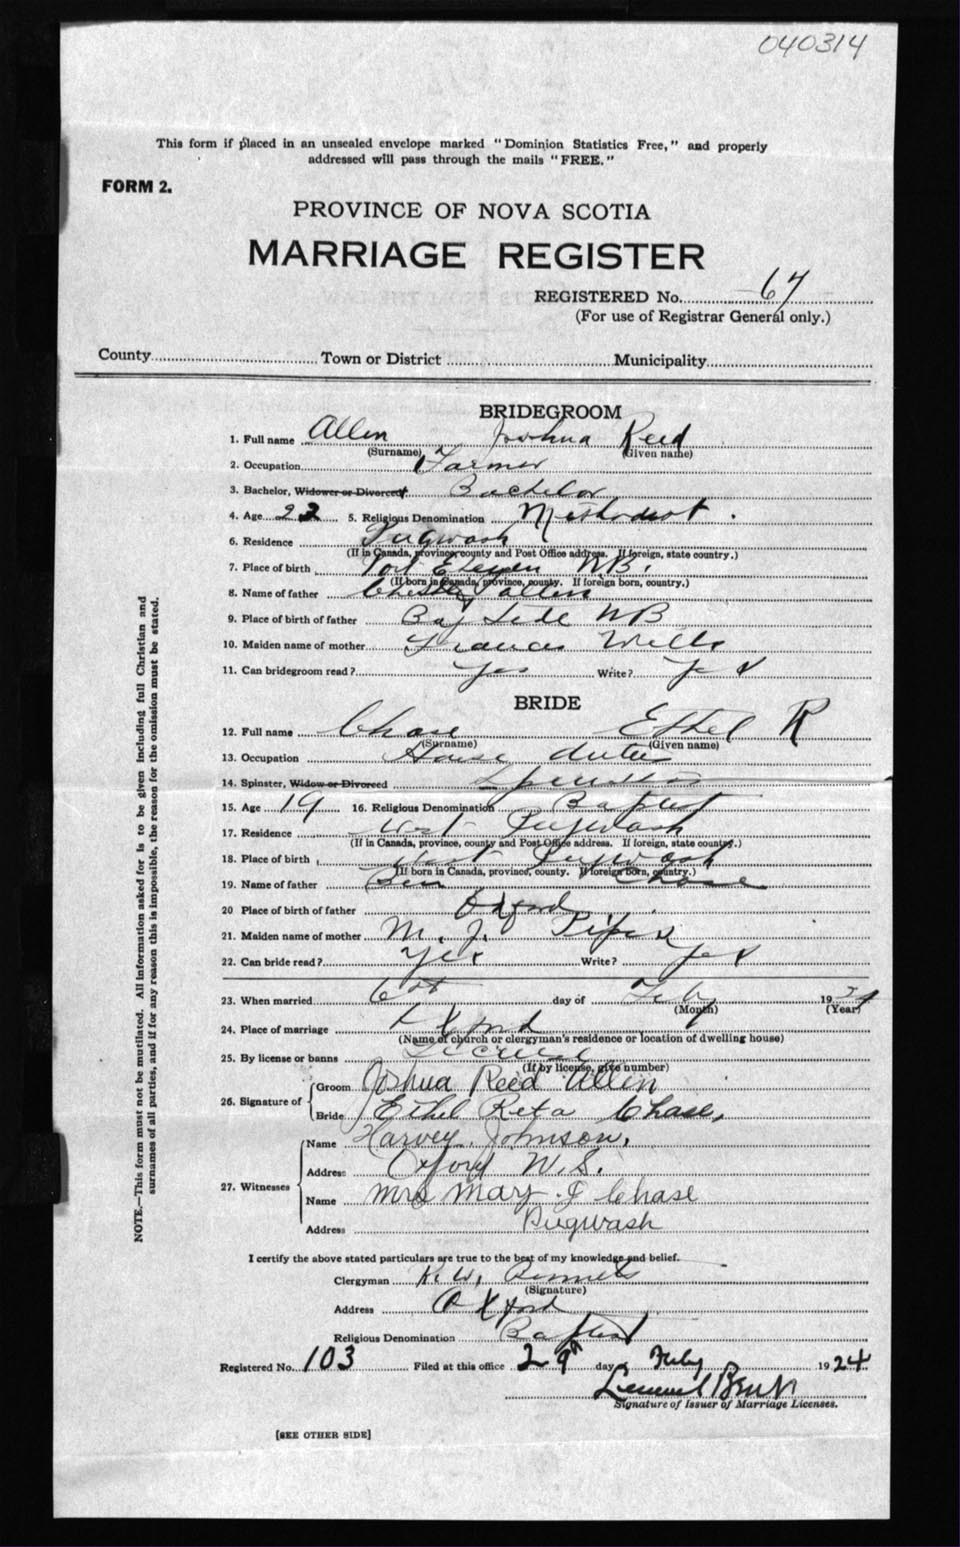 040314
This form if placed in an unsealed envelope marked "Dominion Statistics Free," and properly
addressed will pass through the mails "FREE."
FORM 2.
PROVINCE OF NOVA SCOTIA
MARRIAGE REGISTER
REGISTERED No. 67
(For use of Registrar General only.)
County Town or District Municipality
BRIDEGROOM
1. Full name Allen Joshua Reed
(Surname) (Given name)
2. Occupation Farmer
3. Bachelor, Widower or Divorced Bachelor
4. Age 22 5. Religious Denomination Methodist.
6. Residence Pugwash
(If in Canada, province, county and Post Office address. If foreign, state country.)
7. Place of birth Port N.B.
(If born in Canada, province, county. If foreign born, country.)
8. Name of father Chesley Allen
9. Place of birth of father Bay Side NB
10. Maiden name of mother Frances Wells
11. Can bridegroom read? Yes Write? Yes
BRIDE
12. Full name Chase Ethel R
(Surname) (Given name)
13. Occupation House duties
14. Spinster, Widow or Divorced Spinster
15. Age 19 16. Religious Denomination Baptist
17. Residence West Pugwash
(If in Canada, province, county and Post Office address. If foreign, state country.)
18. Place of birth West Pugwash
(If born in Canada, province, county. If foreign born, country.)
19. Name of father Ben Chase
20 Place of birth of father Oxford
21. Maiden name of mother M. J.
22. Can bride read? Yes Write? Yes
23. When married 6th day of 19 24
(Month) (Year)
24. Place of marriage Oxford
(Name of church or clergyman's residence or location of dwelling house)
25. By license or banns License
(If by license, give number)
26. Signature of Groom Joshua Reed Allen
Bride Ethel Reta Chase,
27. Witnesses Name Harvey Johnson.
Address Oxford N.S.
Name Mrs May J Chase
Address Pugwash
I certify the above stated particulars are true to the best of my knowledge and belief.
Clergyman
(Signature)
Address Oxford
Religious Denomination Baptist
Registered No. 103 Filed at this office 29th day of 1924
Signature of Issuer of Marriage Licenses.
[SEE OTHER SIDE]
NOTE.—This form must not be mutilated. All information asked for is to be given including full Christian and
surnames of all parties, and if for any reason this is impossible, the reason for the omission must be stated.